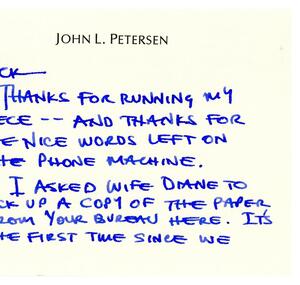 JOHN L. PETERSEN
CK
THANKS FOR RUNNING MY
ECE -- AND THANKS FOR
E NICE WORDS LEFT ON
HE PHONE MACHINE.
I ASKED WIFE DIANE TO
CK UP A COPY OF THE PAPER
ROM YOUR BUREAU HERE. IT'S
HE FIRST TIME SINCE WE